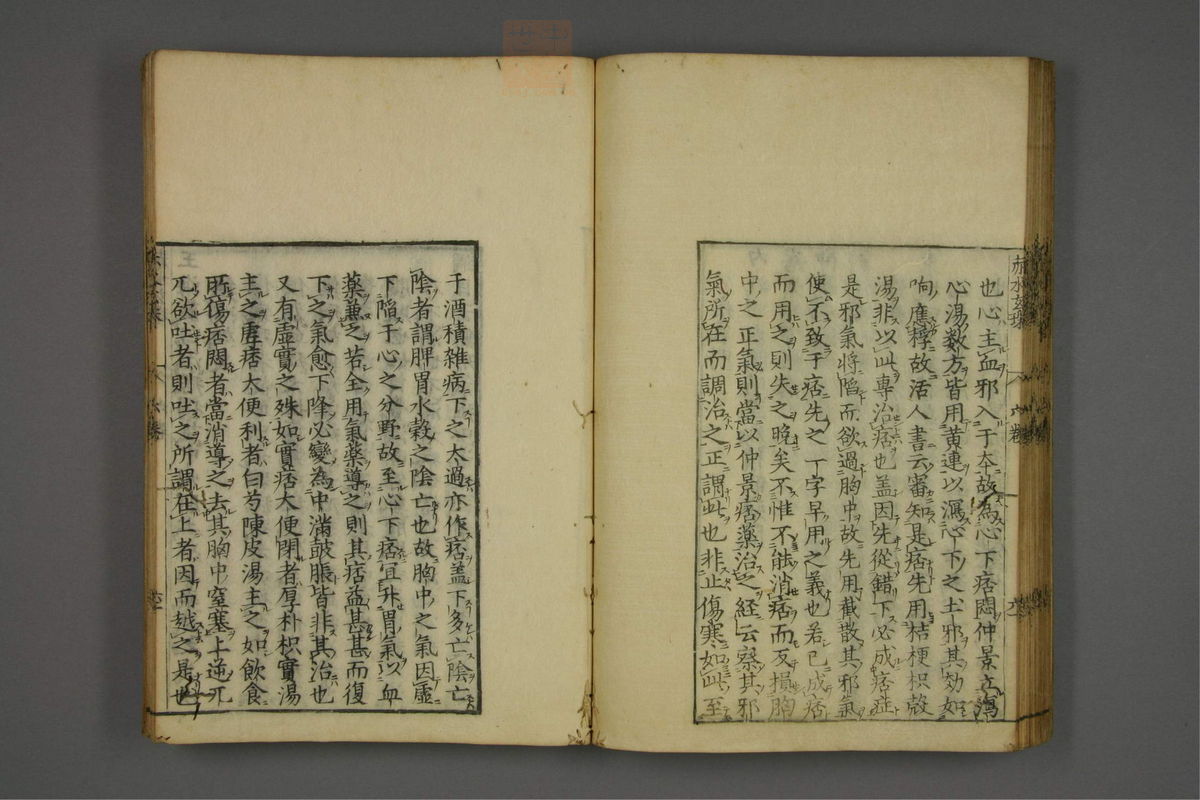 也心主血邪入于本故為心下痞悶仲景立瀉
心湯数方皆用黄連以瀉心下之土邪其効如
响應桴故活人書云審知是痞先用桔梗枳殻
湯非以此專治痞也盖因先從錯下必成痞症
是邪氣將陷而欲過胸中故先用截散其邪氣
使不致于痞先之一字早用之義也若已成痞
而用之則失之晚矣不惟不能消痞而反損胸
中之正氣則當以仲景痞藥治之經云察其邪
氣所在而調治之正謂此也非止傷寒如此至
于酒積雜病下之太過亦作痞盖下多亡陰亡
陰者謂脾胃水穀之陰亡也故胸中之氣因虚
下陷于心之分野故至心下痞宜升胃氣以血
藥兼之若全用氣藥導之則其痞益甚甚而復
下之氣愈下降必變為中滿皷脹皆非其治也
又有虚實之殊如實痞大便閉者厚朴枳實湯
主之虚痞大便利者白芍陳皮湯主之如飲食
所傷痞悶者當消導之去其胸中窒塞上逆兀
兀欲吐者則吐之所謂在上者因而越之是也